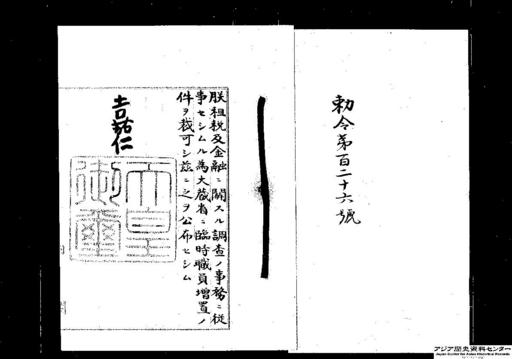 勅令第百二十六號
朕租税及金融ニ關スル調査ノ事務ニ從
事セシムル為大藏省ニ臨時職員増置ノ
件ヲ裁可シ茲ニ之ヲ公布セシム
嘉仁
天皇
御璽
アジア歴史資料センター
Japan Center for Asian Historical Records